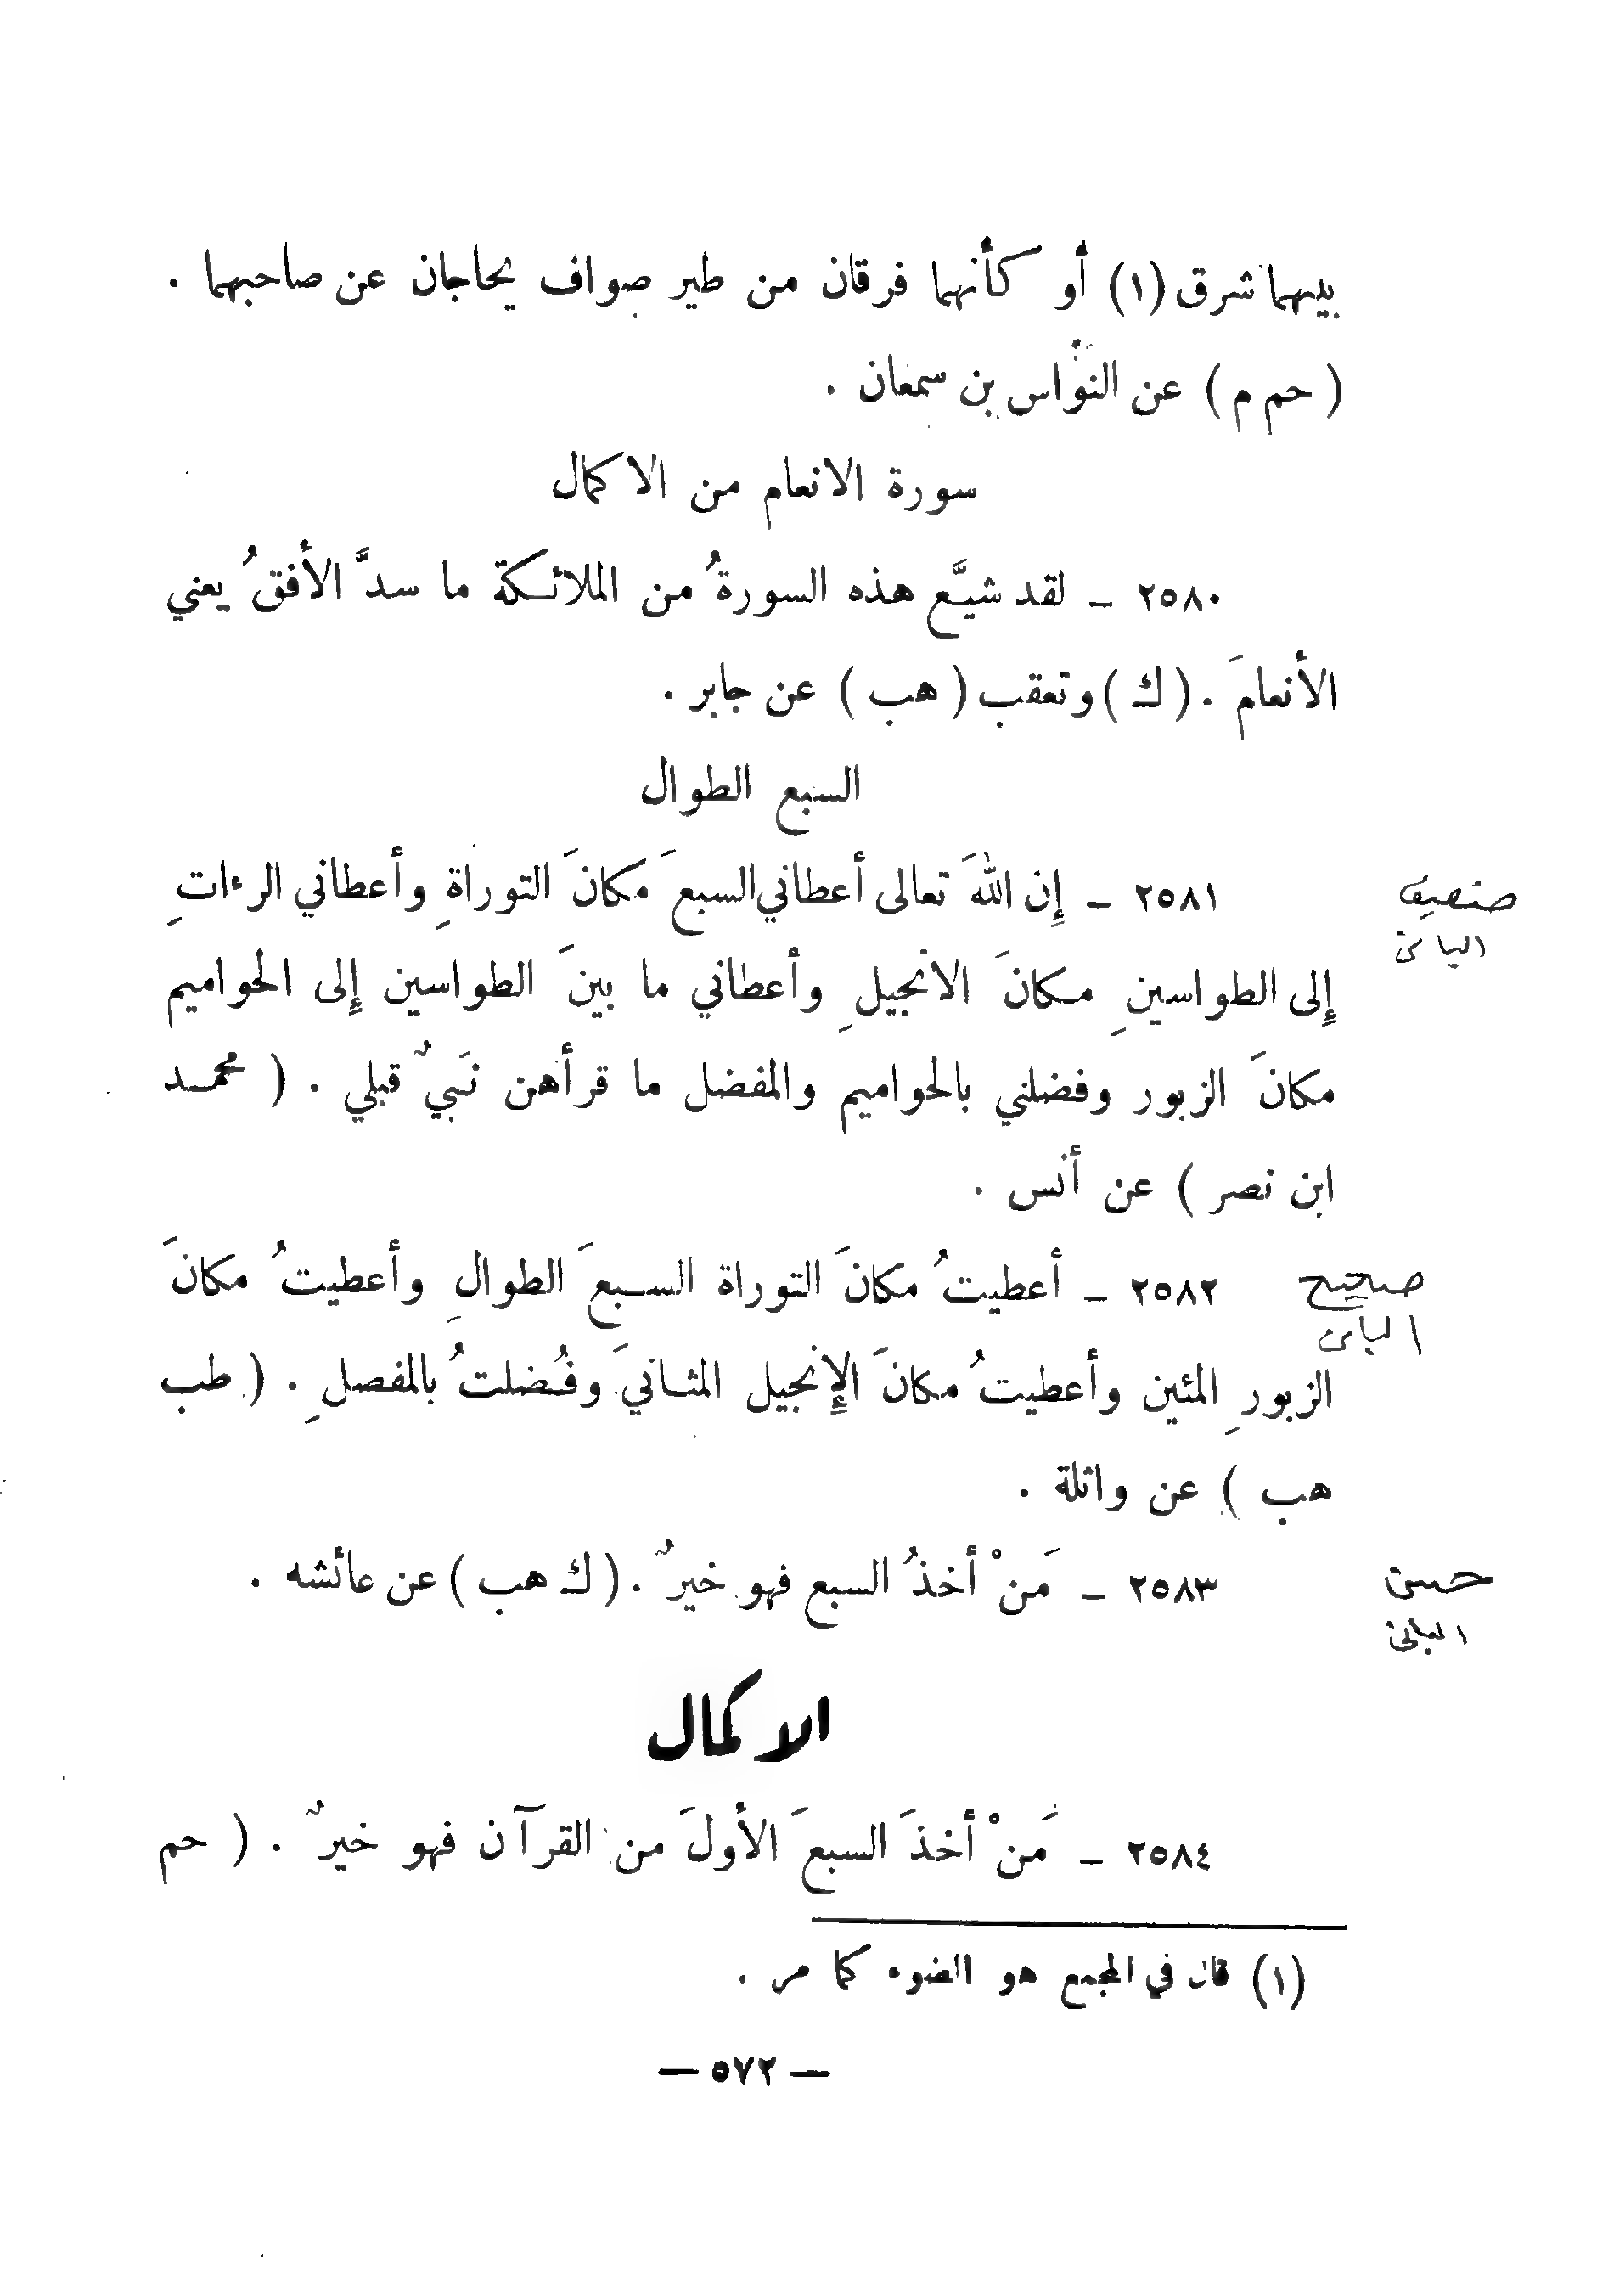 بينهما شرق (١) أو كأنهما فرقان من طير صواف يحاجان عن صاحبهما .
( حم م ) عن النوَّاس بن سمعان .
سورة الانعام من الاكمال
٢٥٨٠ – لقد شيَّع هذه السورةُ من الملائكة ما سدَّ الأفقُ يعني
الأنعامَ . ( ك ) وتعقب ( هب ) عن جابر .
السبع الطوال
٢٥٨١ – إِن اللهَ تعالى أعطاني السبعَ مكانَ التوراةِ وأعطاني الرءاتِ
ضعيف
البانى
إِلى الطواسينِ مكانَ الانجيلِ وأعطاني ما بينَ الطواسين إِلى الحواميم
مكانَ الزبور وفضلني بالحواميم والمفضل ما قرأهن نَبيٌ قبلي . ( محمد
ابن نصر ) عن أنس .
٢٥٨٢ – أعطيتُ مكانَ التوراة السبعَ الطوالِ وأعطيتُ مكانَ
صحيح
البانى
الزبورِ المئين وأعطيتُ مكانَ الإِنجيل المثانيَ وفُضلتُ بالمفصلِ . ( طب
هب ) عن واثلة .
٢٥٨٣ – مَنْ أخذُ السبع فهو خيرٌ . ( ك هب ) عن عائشه .
حسن
البانى
الاكمال
٢٥٨٤ – مَنْ أخذَ السبعَ الأولَ من القرآن فهو خيرٌ . ( حم
(١) قال في المجمع هو الضوء كما مر .
— ٥٧٢ —